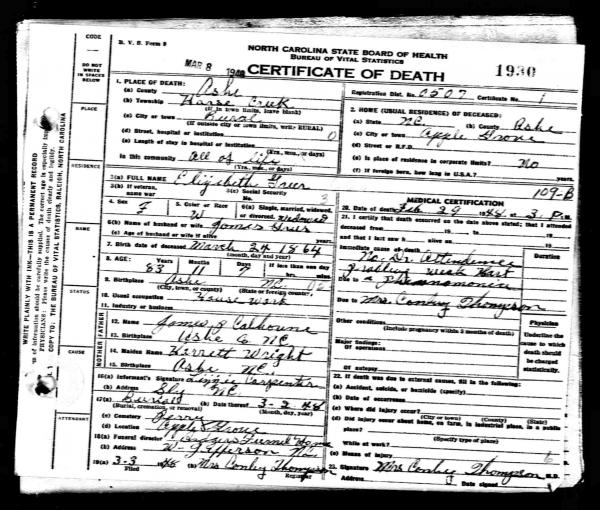 CODE
N. C. B. V. S. Form 8
MAR 8
NORTH CAROLINA STATE BOARD OF HEALTH
BUREAU OF VITAL STATISTICS
CERTIFICATE OF DEATH
1930
DO NOT WRITE IN SPACES BELOW
PLACE
RESIDENCE
NAME
STATUS
CAUSE
ATTENDANT
WRITE PLAINLY WITH INK—THIS IS A PERMANENT RECORD
COPY TO: THE BUREAU OF VITAL STATISTICS, RALEIGH, NORTH CAROLINA
Registration Dist. No. 0507 Certificate No. 1
1. PLACE OF DEATH:
(a) County Ashe
(b) Township Horse Creek
(If in town limits, leave blank)
(c) City or town Rural
(If outside city or town limits, write RURAL)
(d) Street, hospital or institution
(e) Length of stay in hospital or institution
(Yrs., mos., or days)
In this community all of life
(Yrs., mos., or days)
2. HOME (USUAL RESIDENCE) OF DECEASED:
(a) State N.C. (b) County Ashe
(c) City or town Apple Grove
(d) Street or R.F.D.
(e) Is place of residence in corporate limits? No
(f) If foreign born, how long in U.S.A.?
109-B
3(a) FULL NAME Elizabeth Greer
3(b) If veteran, name war
3(c) Social Security No.
4. Sex F
5. Color or Race W
6(a) Single, married, widowed or divorced. widowed
6(b) Name of husband or wife James Greer
6(c) Age of husband or wife if alive
7. Birth date of deceased March 24 1864
(month, day and year)
8. AGE: Years 83 Months 11 Days 7 If less than one day hr. min.
9. Birthplace Ashe N.C.
(City, town, or county) (State or foreign country)
10. Usual occupation House Work
11. Industry or business
FATHER
12. Name James Calhoune
13. Birthplace Ashe Co NC.
MOTHER
14. Maiden Name Harrett Wright
15. Birthplace Ashe NC.
16(a) Informant's Signature Carpenter
(b) Address NC.
17(a) Burial (b) Date thereof 3-2-48
(Burial, cremation, or removal) (Month, day, year)
(c) Cemetery
(d) Location Apple Grove
18(a) Funeral director Funeral Home
(b) Address W- Jefferson NC.
19(a) 3-3 48 (b) Mrs Conley Thompson
Filed Registrar
MEDICAL CERTIFICATION
20. Date of death Feb 29 48 at 3 P.m.
21. I certify that death occurred on the date above stated; that I attended
deceased from to
and that I last saw h alive on
No Dr. Attendence
Duration
Immediate cause of death
weak Hart
Due to Pheamomonia
Due to Mrs. Conley Thompson
Other conditions
(Include pregnancy within 3 months of death)
Major findings:
Of operations
Of autopsy
Physician
Underline the cause to which death should be charged statistically.
22. If death was due to external causes, fill in the following:
(a) Accident, suicide, or homicide (specify)
(b) Date of occurrence
(c) Where did injury occur?
(City or town) (County) (State)
(d) Did injury occur about home, on farm, in industrial place, in a public place?
(Specify type of place)
While at work?
(e) Means of injury
23. Signature Mrs Conley Thompson M.D.
Address Date signed